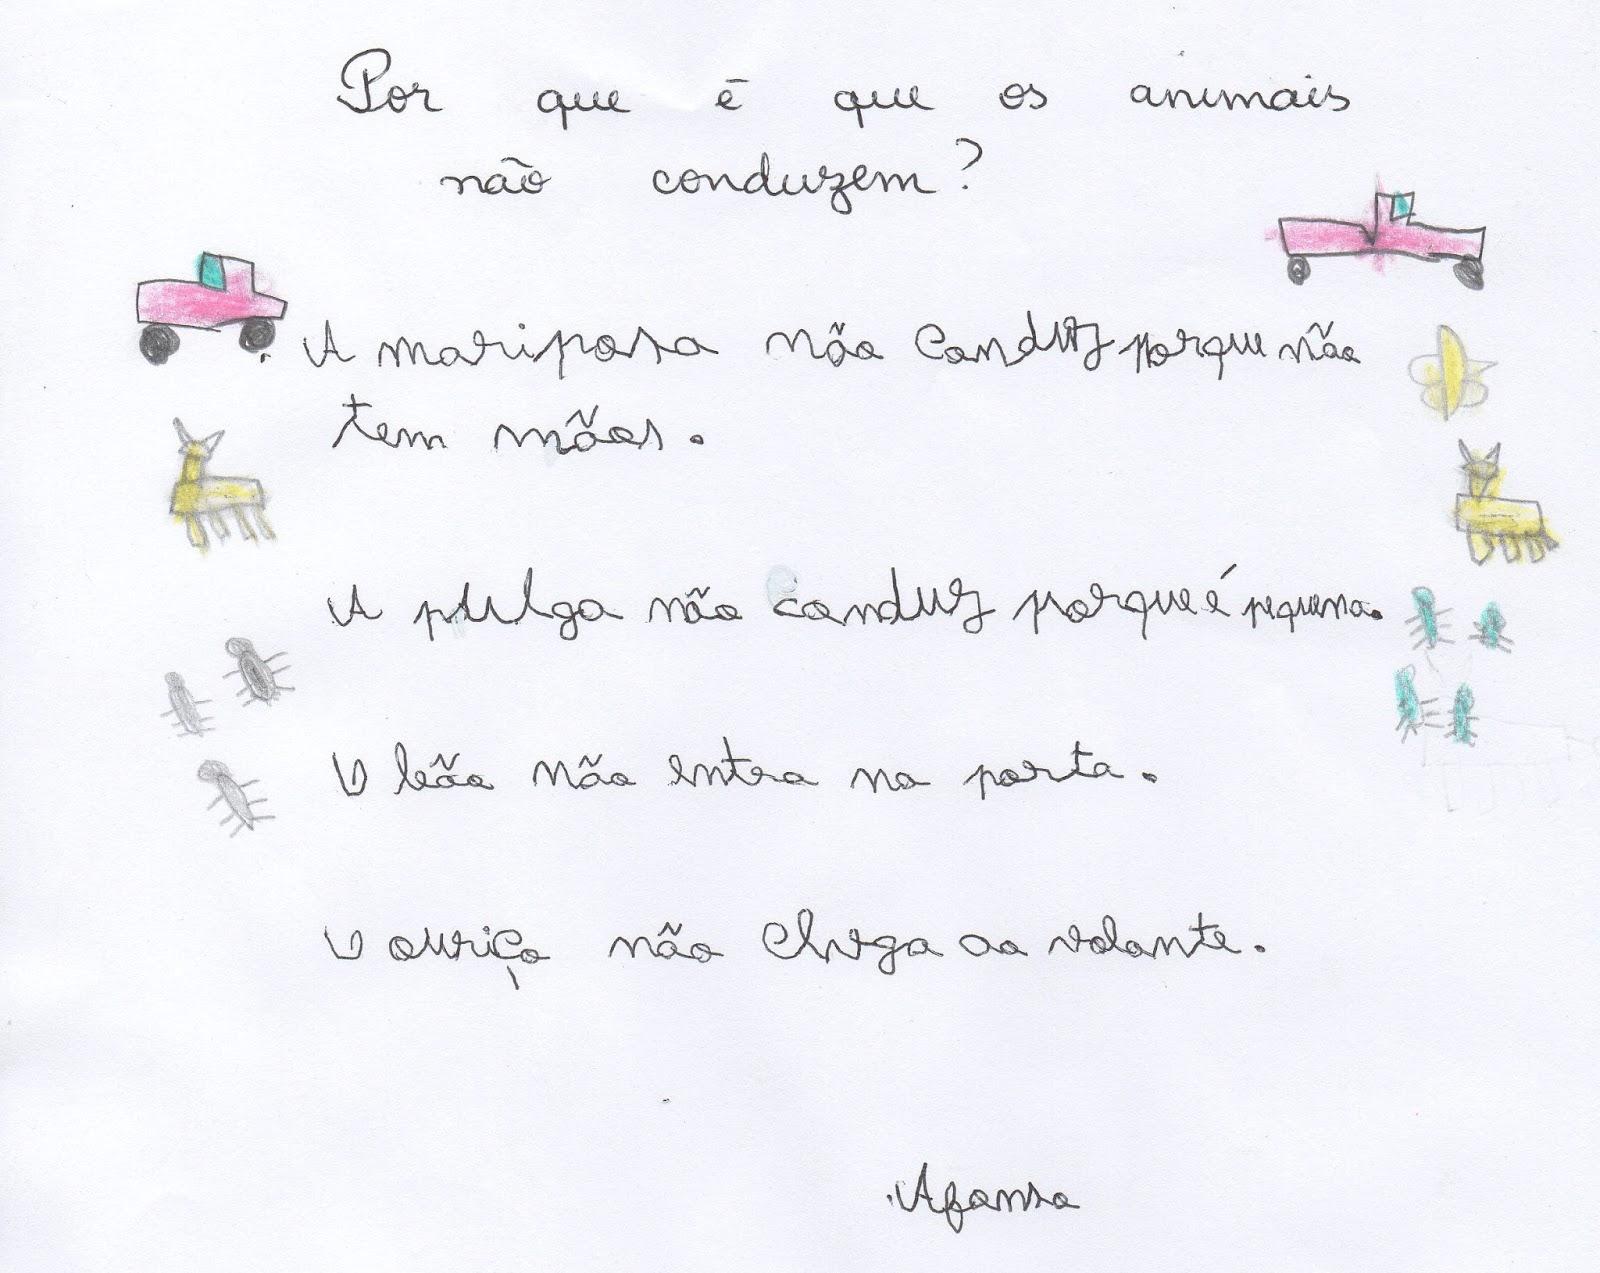 Por que é que os animais
não conduzem?
A mariposa não conduz porque não
tem mãos.
A pulga não conduz porque é pequena.
O leão não entra na porta.
O ouriço não chega ao volante.
Afonso